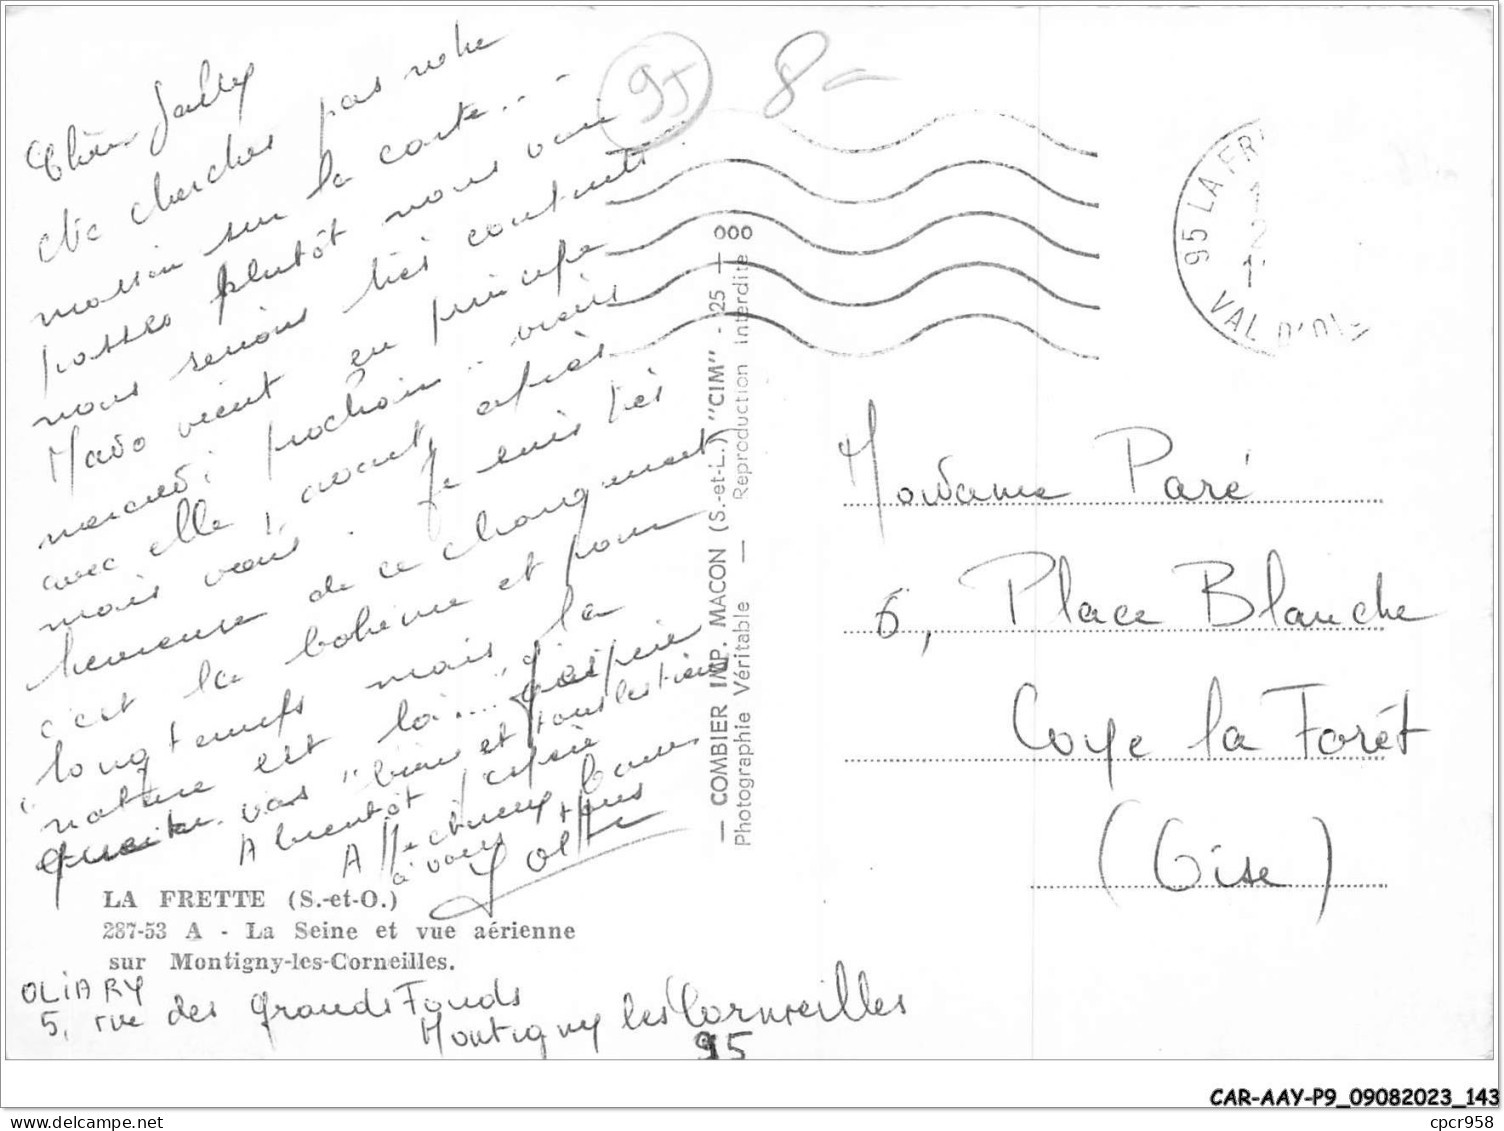 Chère Jally
Ne cherches pas notre
maison sur la carte...
passes plutôt nous voir
nous serions très contents.
Mado vient en principe
mercredi prochain.. viens
avec elle, avant, après
mais viens. Je suis très
heureuse de ce changement
c'est la bohème et pour
longtemps mais la
nature est là....
vas "bien et tous les tiens
A bientôt j'espère
à vous tous
LA FRETTE (S.-et-O.)
287-53 A - La Seine et vue aérienne
sur Montigny-les-Corneilles.
OLIARY
5, rue des Grands Fonds
Montigny les Cormeilles
95
95
8-
— COMBIER IMP. MACON (S.-et-L.) "CIM" - 25 — 000
Photographie Véritable — Reproduction interdite
95 LA FR
VAL D'OI
Madame Paré
6, Place Blanche
Coye la Forêt
(Oise)
CAR-AAY-P9_09082023_143
cpcr958